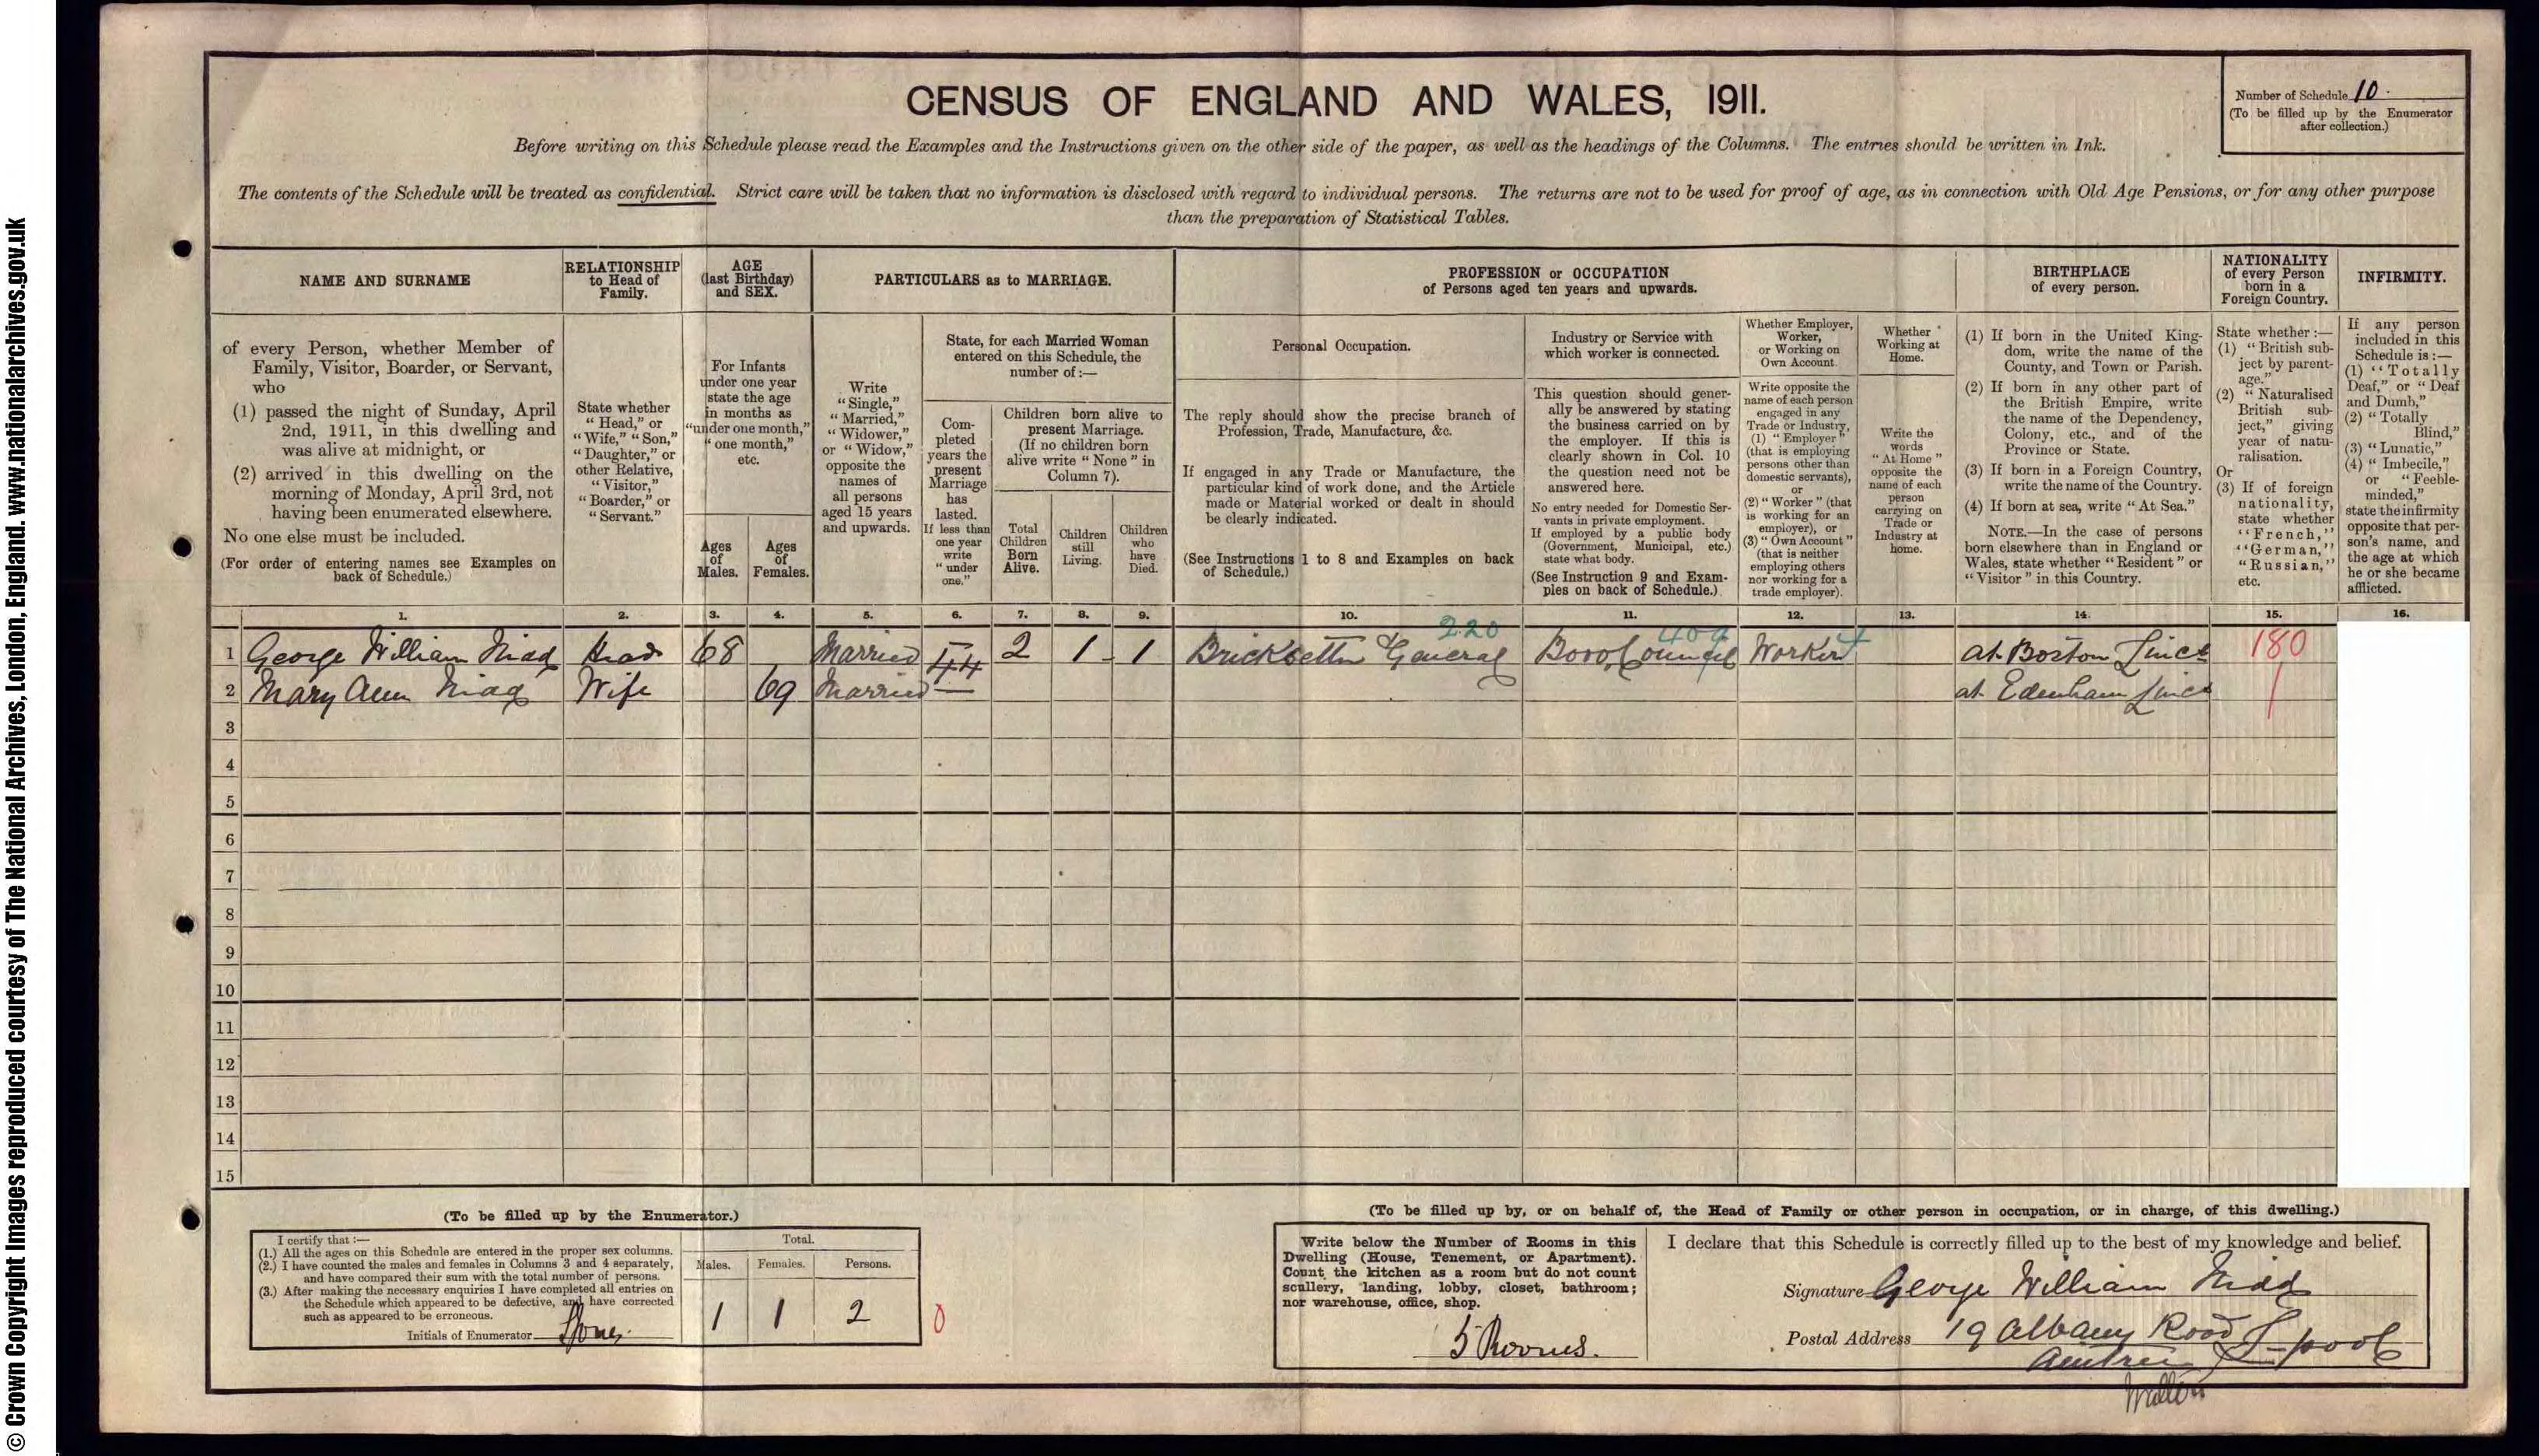 © Crown Copyright Images reproduced courtesy of The National Archives, London, England. www.nationalarchives.gov.uk
CENSUS OF ENGLAND AND WALES, 1911.
Number of Schedule 10.
(To be filled up by the Enumerator
after collection.)
Before writing on this Schedule please read the Examples and the Instructions given on the other side of the paper, as well as the headings of the Columns. The entries should be written in Ink.
The contents of the Schedule will be treated as confidential. Strict care will be taken that no information is disclosed with regard to individual persons. The returns are not to be used for proof of age, as in connection with Old Age Pensions, or for any other purpose
than the preparation of Statistical Tables.
NAME AND SURNAME
of every Person, whether Member of
Family, Visitor, Boarder, or Servant,
who
(1) passed the night of Sunday, April
2nd, 1911, in this dwelling and
was alive at midnight, or
(2) arrived in this dwelling on the
morning of Monday, April 3rd, not
having been enumerated elsewhere.
No one else must be included.
(For order of entering names see Examples on
back of Schedule.)
1.
RELATIONSHIP
to Head of
Family.
State whether
"Head," or
"Wife," "Son,"
"Daughter," or
other Relative,
"Visitor,"
"Boarder," or
"Servant."
2.
AGE
(last Birthday)
and SEX.
For Infants
under one year
state the age
in months as
"under one month,"
"one month,"
etc.
Ages
of
Males.
3.
Ages
of
Females.
4.
PARTICULARS as to MARRIAGE.
Write
"Single,"
"Married,"
"Widower,"
or "Widow,"
opposite the
names of
all persons
aged 15 years
and upwards.
5.
State, for each Married Woman
entered on this Schedule, the
number of :—
Com-
pleted
years the
present
Marriage
has
lasted.
If less than
one year
write
"under
one."
6.
Children born alive to
present Marriage.
(If no children born
alive write "None" in
Column 7).
Total
Children
Born
Alive.
7.
Children
still
Living.
8.
Children
who
have
Died.
9.
PROFESSION or OCCUPATION
of Persons aged ten years and upwards.
Personal Occupation.
The reply should show the precise branch of
Profession, Trade, Manufacture, &c.
If engaged in any Trade or Manufacture, the
particular kind of work done, and the Article
made or Material worked or dealt in should
be clearly indicated.
(See Instructions 1 to 8 and Examples on back
of Schedule.)
10.
Industry or Service with
which worker is connected.
This question should gener-
ally be answered by stating
the business carried on by
the employer. If this is
clearly shown in Col. 10
the question need not be
answered here.
No entry needed for Domestic Ser-
vants in private employment.
If employed by a public body
(Government, Municipal, etc.)
state what body.
(See Instruction 9 and Exam-
ples on back of Schedule.)
11.
Whether Employer,
Worker,
or Working on
Own Account.
Write opposite the
name of each person
engaged in any
Trade or Industry,
(1) "Employer"
(that is employing
persons other than
domestic servants),
or
(2) "Worker" (that
is working for an
employer), or
(3) "Own Account"
(that is neither
employing others
nor working for a
trade employer).
12.
Whether
Working at
Home.
Write the
words
"At Home"
opposite the
name of each
person
carrying on
Trade or
Industry at
home.
13.
BIRTHPLACE
of every person.
(1) If born in the United King-
dom, write the name of the
County, and Town or Parish.
(2) If born in any other part of
the British Empire, write
the name of the Dependency,
Colony, etc., and of the
Province or State.
(3) If born in a Foreign Country,
write the name of the Country.
(4) If born at sea, write "At Sea."
NOTE.—In the case of persons
born elsewhere than in England or
Wales, state whether "Resident" or
"Visitor" in this Country.
14.
NATIONALITY
of every Person
born in a
Foreign Country.
State whether :—
(1) "British sub-
ject by parent-
age."
(2) "Naturalised
British sub-
ject," giving
year of natu-
ralisation.
Or
(3) If of foreign
nationality,
state whether
"French,"
"German,"
"Russian,"
etc.
15.
INFIRMITY.
If any person
included in this
Schedule is :—
(1) "Totally
Deaf," or "Deaf
and Dumb,"
(2) "Totally
Blind,"
(3) "Lunatic,"
(4) "Imbecile,"
or "Feeble-
minded,"
state the infirmity
opposite that per-
son's name, and
the age at which
he or she became
afflicted.
16.
220 409 4
1 George William Nidd Head 68 Married 44 2 1 1 Bricksetter General Boro, Council Worker at Boston Lincs 180
2 Mary Ann Nidd Wife 69 Married — at Edenham Lincs
3
4
5
6
7
8
9
10
11
12
13
14
15
(To be filled up by the Enumerator.)
I certify that :—
(1.) All the ages on this Schedule are entered in the proper sex columns.
(2.) I have counted the males and females in Columns 3 and 4 separately,
and have compared their sum with the total number of persons.
(3.) After making the necessary enquiries I have completed all entries on
the Schedule which appeared to be defective, and have corrected
such as appeared to be erroneous.
Initials of Enumerator
Total.
Males. Females. Persons.
1 1 2
0
(To be filled up by, or on behalf of, the Head of Family or other person in occupation, or in charge, of this dwelling.)
Write below the Number of Rooms in this
Dwelling (House, Tenement, or Apartment).
Count the kitchen as a room but do not count
scullery, landing, lobby, closet, bathroom;
nor warehouse, office, shop.
5 Rooms.
I declare that this Schedule is correctly filled up to the best of my knowledge and belief.
Signature George William Nidd
Postal Address 19 Albany Road L-pool
Aintree
Walton